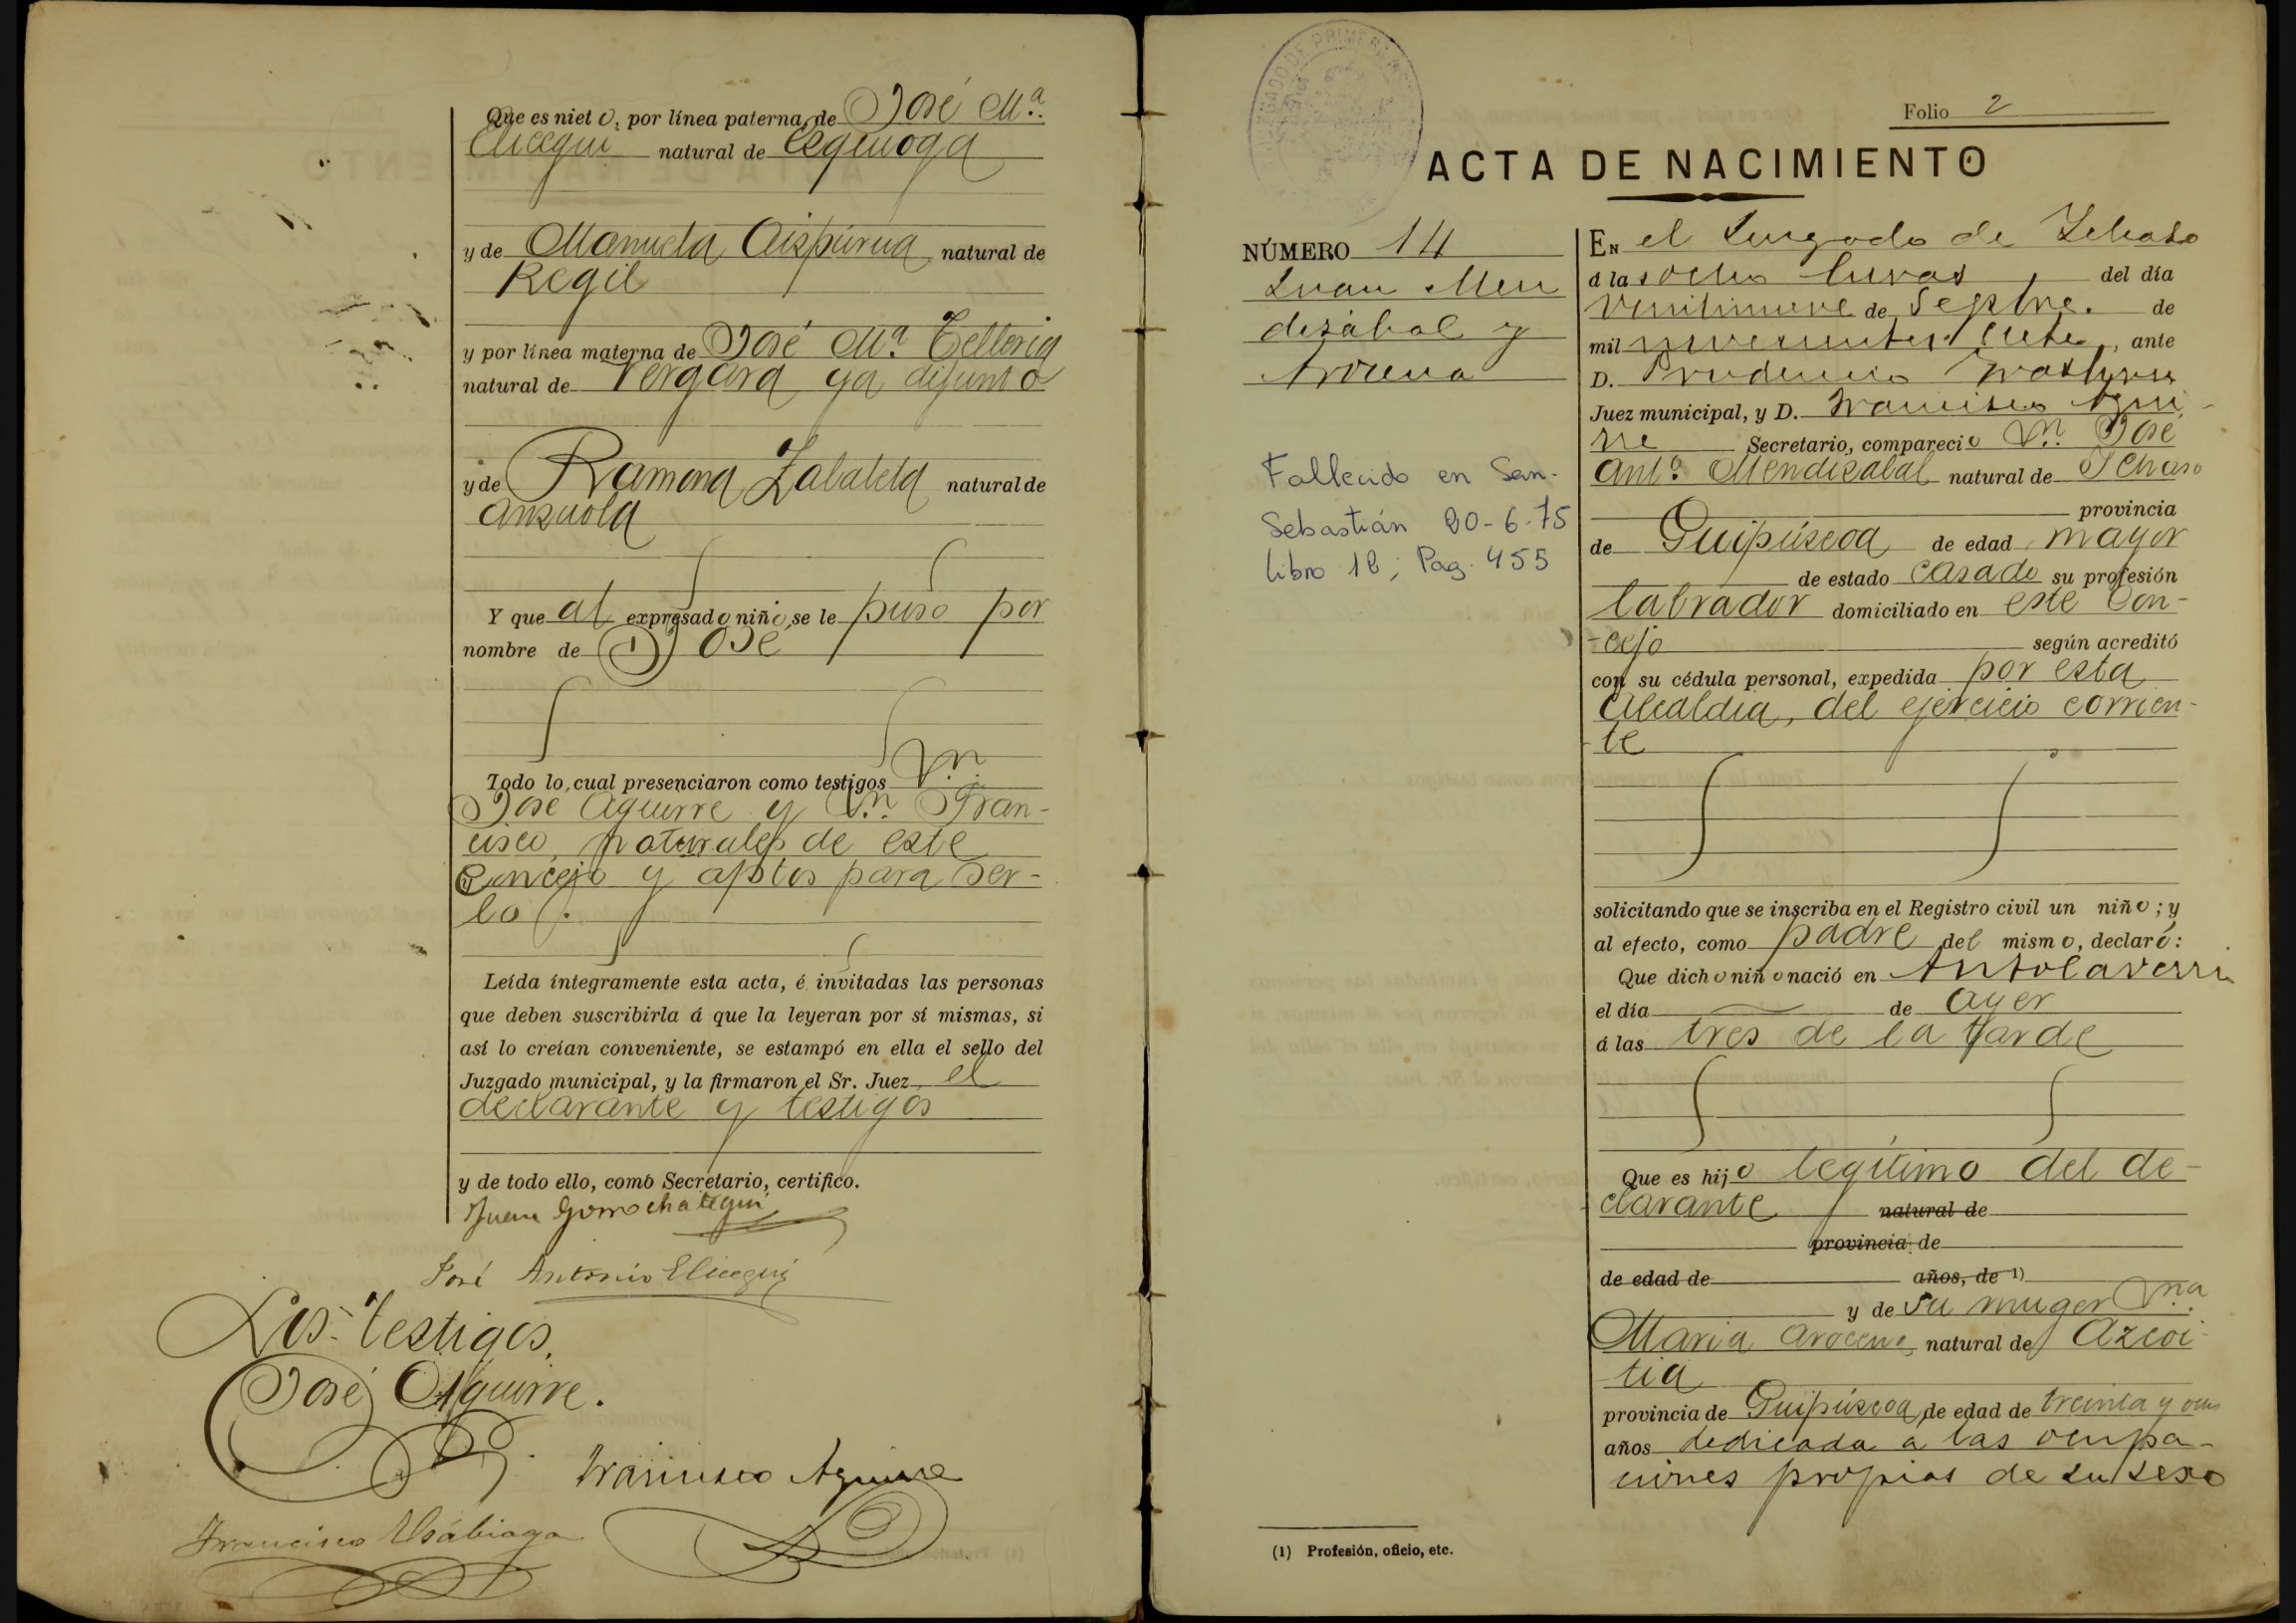 Que es niet o, por línea paterna, de José Mª.
Elicegui natural de Ceginoga
y de Manuela Aispúrua natural de
Regil
y por línea materna de José Mª. Telleria
natural de Vergara ya difunto
y de Ramona Zabaleta natural de
Anzuola
Y que al expresad o niñ o, se le puso por
nombre de José
Todo lo cual presenciaron como testigos Dn.
José Aguirre y Dn. Fran-
cisco, naturales de este
Concejo y aptos para ser-
lo.
Leída íntegramente esta acta, é invitadas las personas
que deben suscribirla á que la leyeran por sí mismas, si
así lo creían conveniente, se estampó en ella el sello del
Juzgado municipal, y la firmaron el Sr. Juez, el
declarante y testigos
y de todo ello, como Secretario, certifico.
Juan Gorrochategui
José Antonio Elicegui
Los testigos,
José Aguirre.
Francisco Aguirre
Francisco Usábiaga
JUZGADO DE PRIMERA
Folio 2
ACTA DE NACIMIENTO
NÚMERO 14
Juan Men
dizábal y
Arocena
Fallecido en San-
Sebastián 20-6-75
libro 18; Pag. 455
EN el Juzgado de Ichaso
á las ocho horas del día
veintinueve de Septbre. de
mil novecientos siete, ante
D. Prudencio
Juez municipal, y D. Francisco Agui
rre Secretario, compareci o Dn. José
Antº. Mendizabal natural de Ichaso
provincia
de Guipúscoa de edad mayor
de estado casado su profesión
labrador domiciliado en este Con-
-cejo según acreditó
con su cédula personal, expedida por esta
Alcaldia, del ejercicio corrien-
te
solicitando que se inscriba en el Registro civil un niñ o; y
al efecto, como padre del mism o, declaró:
Que dich o niñ o nació en Antolaverri
el día de ayer
á las tres de la tarde
Que es hij o legítimo del de-
clarante natural de
provincia de
de edad de años, de 1)
y de su muger Dña.
Maria Arocena natural de Azcoi-
tia
provincia de Guipúzcoa, de edad de treinta y ocho
años dedicada a las ocupa-
ciones propias de su sexo
(1) Profesión, oficio, etc.